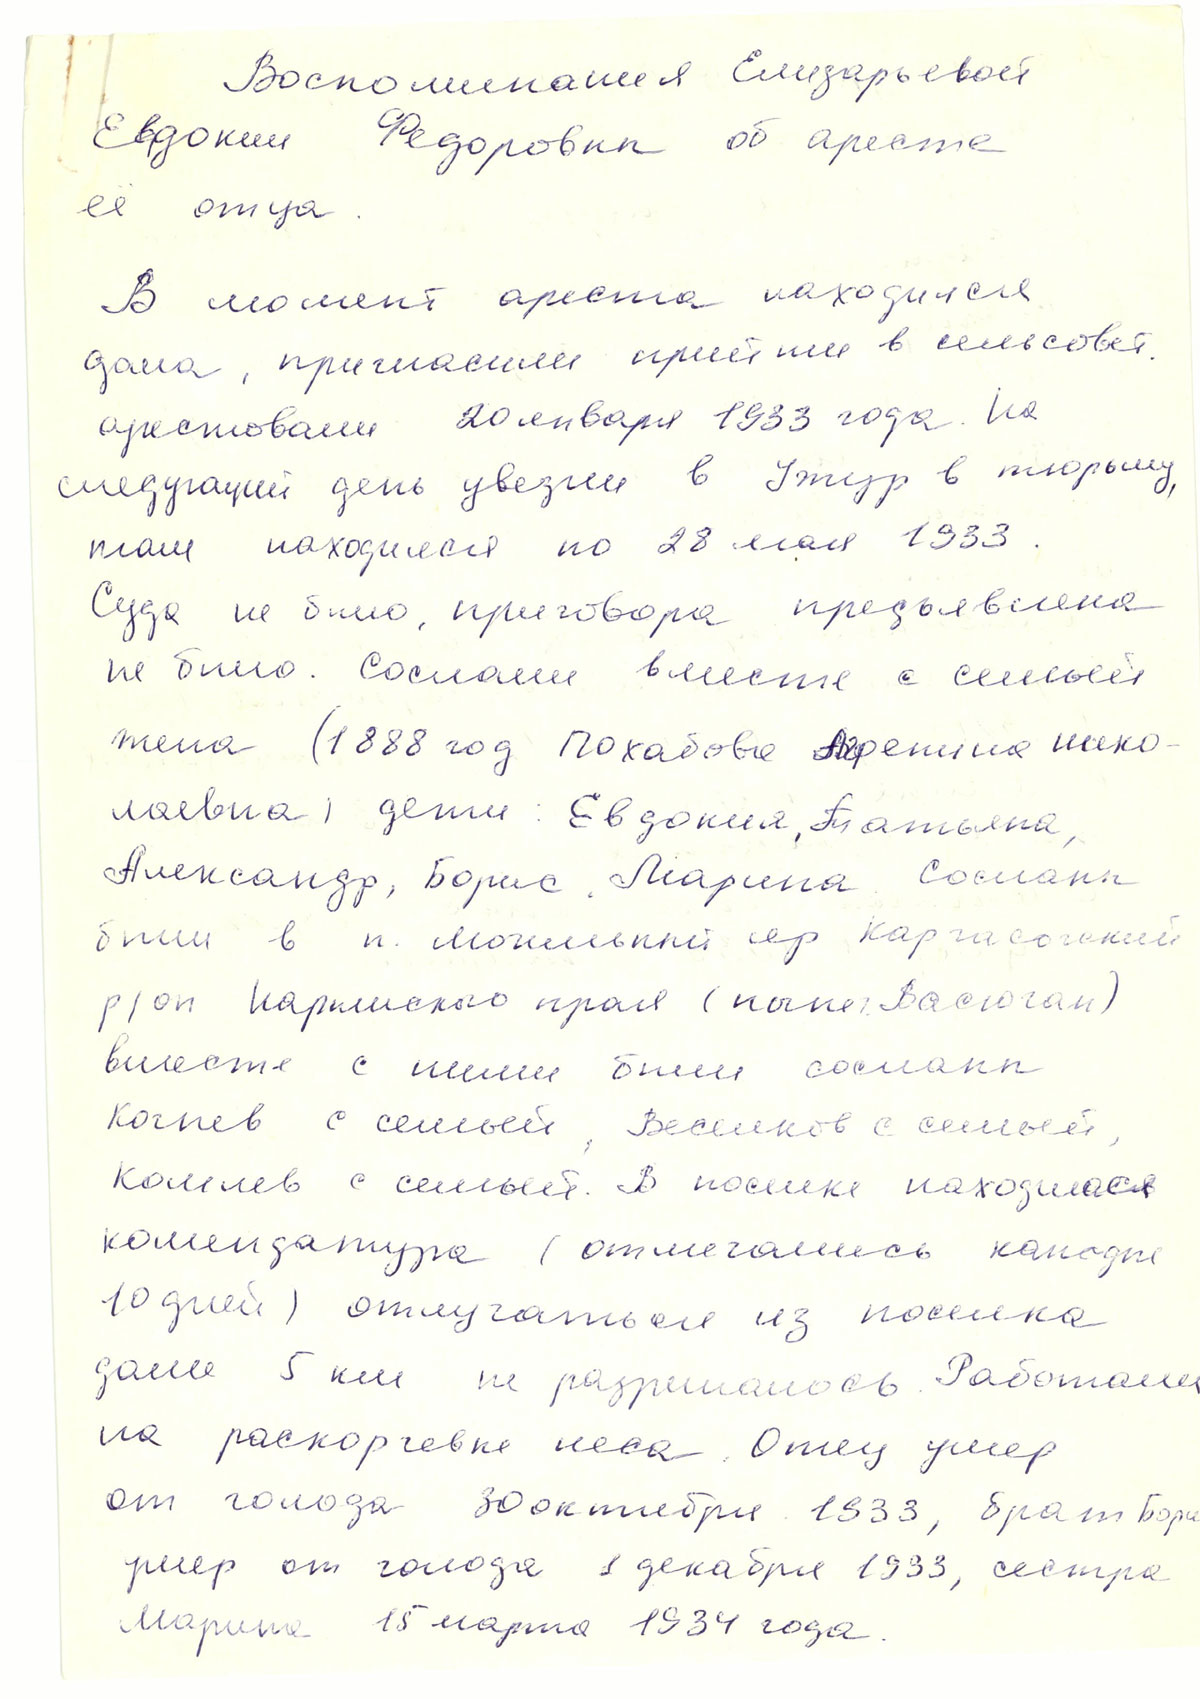 Воспоминания Елизарьевой
Евдокии Федоровны об аресте
её отца.
В момент ареста находился
дома, пригласили прийти в сельсовет.
арестовали 20 января 1933 года. На
следующий день увезли в Ужур в тюрьму,
там находился по 28 мая 1933.
Суда не было, приговора предъявлена
не было. Сослали вместе с семьей
жена (1888 год Похабова Агрепина Нико-
лаевна) дети: Евдокия, Татьяна,
Александр, Борис, Марина. Сосланы
были в п. Могильный яр Каргасогский
р/он Нарымского края (ныне Васюган)
вместе с ними были сосланы
Когнев с семьей, Веселков с семьей,
Комлев с семьей. В поселке находилась
комендатура (отмечались каждые
10 дней) отлучаться из поселка
далее 5 км не разрешалось. Работали
на раскорчевке леса. Отец умер
от голода 30 октября 1933, брат Борис
умер от голода 1 декабря 1933, сестра
Марина 15 марта 1934 года.